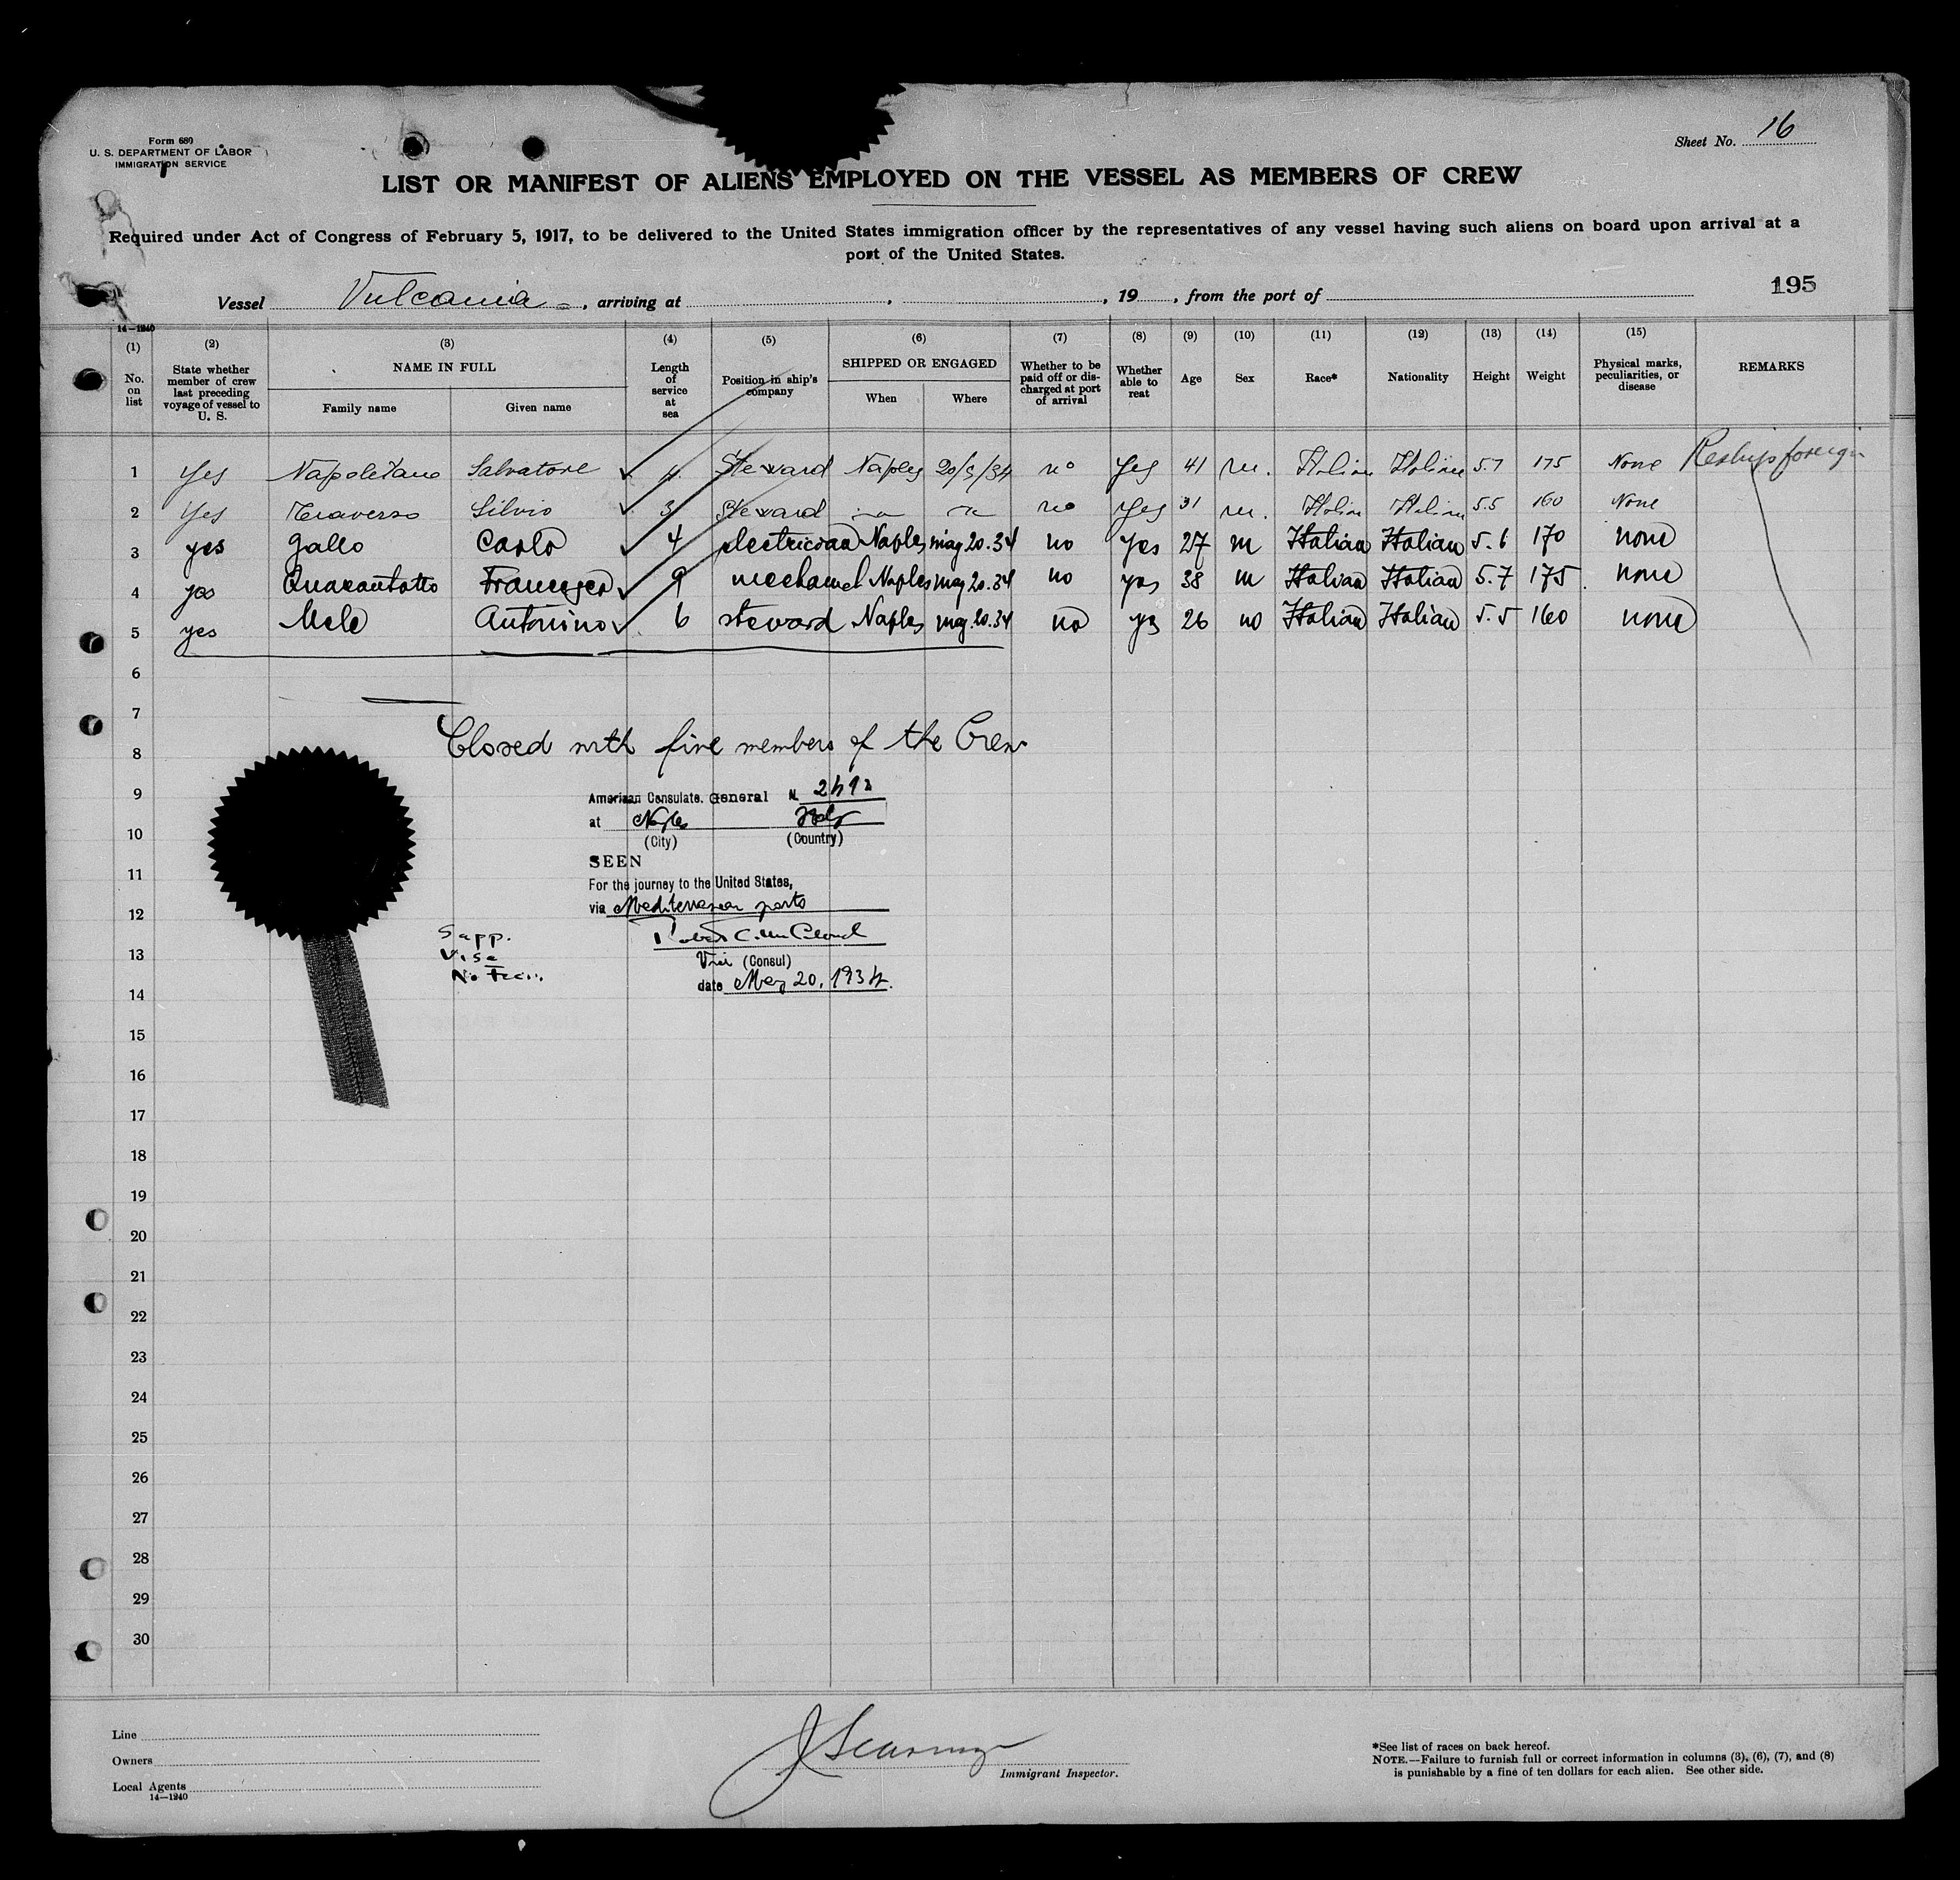 Form 680
U. S. DEPARTMENT OF LABOR
IMMIGRATION SERVICE
Sheet No. 16
LIST OR MANIFEST OF ALIENS EMPLOYED ON THE VESSEL AS MEMBERS OF CREW
Required under Act of Congress of February 5, 1917, to be delivered to the United States immigration officer by the representatives of any vessel having such aliens on board upon arrival at a
port of the United States.
195
Vessel Vulcania, arriving at , , 19 , from the port of
14—1240
(1) (2) (3) (4) (5) (6) (7) (8) (9) (10) (11) (12) (13) (14) (15)
No. on list
State whether member of crew last preceding voyage of vessel to U. S.
NAME IN FULL
Family name Given name
Length of service at sea
Position in ship's company
SHIPPED OR ENGAGED
When Where
Whether to be paid off or discharged at port of arrival
Whether able to reat
Age
Sex
Race*
Nationality
Height
Weight
Physical marks, peculiarities, or disease
REMARKS
1 Yes Napoletano Salvatore 4 Steward Naples 20/5/34 no Yes 41 m. Italian Italian 5.7 175 None Reship foreign
2 Yes Traverso Silvio 3 Steward no Yes 31 m. Italian Italian 5.5 160 None
3 yes Gallo Carlo 4 electrician Naples may 20.34 no yes 27 m Italian Italian 5.6 170 none
4 yes Quarantotto Francesco 9 mechanic Naples may 20.34 no yes 38 m Italian Italian 5.7 175 none
5 yes Mele Antonino 6 steward Naples may 20.34 no yes 26 Italian Italian 5.5 160 none
6
7
Closed with five members of the Crew
8
9
American Consulate. General
at Naples Italy
10
(City) (Country)
SEEN
11
For the journey to the United States,
via Mediterranean ports
12
Supp.
Visa
No Fee
13
Vice (Consul)
date May 20, 1934.
14
15
16
17
18
19
20
21
22
23
24
25
26
27
28
29
30
Line
Owners
Local Agents
14—1240
Immigrant Inspector.
*See list of races on back hereof.
NOTE.—Failure to furnish full or correct information in columns (3), (6), (7), and (8)
is punishable by a fine of ten dollars for each alien. See other side.